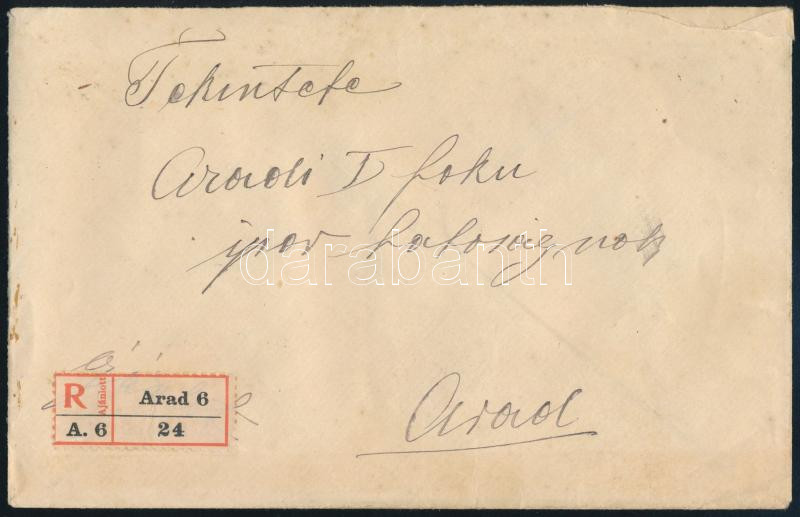 Tekintete
Aradi I foku
ipar hatoságnak
darabanth
Arad
R Ajánlott Arad 6
A. 6 24